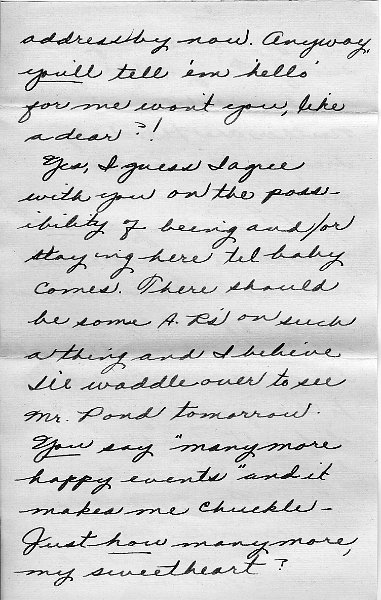 address by now. Anyway,
you'll tell 'em 'hello'
for me won't you, like
a dear?!
Yes, I guess I agree
with you on the poss-
ibility of being and/or
staying here 'til baby
comes. There should
be some A.R's on such
a thing and I believe
I'll waddle over to see
Mr. Pond tomorrow.
You say "many more
happy events" and it
makes me chuckle -
Just how many more,
my sweetheart?